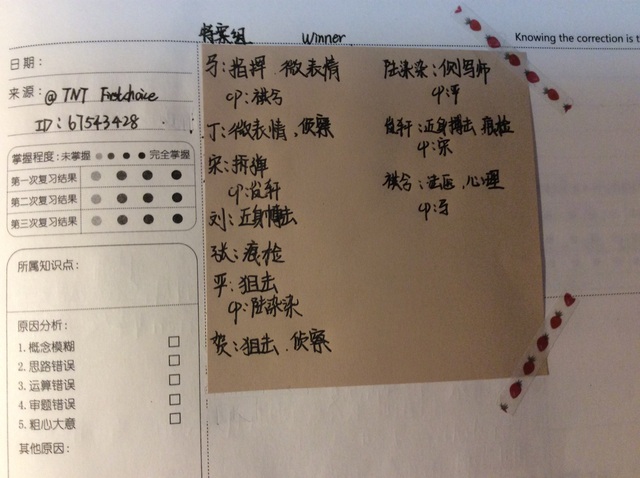 特案组 Winner
Knowing the correction is t
日期：
来源：@TNT Firstchoice
ID：67543428
掌握程度：未掌握 完全掌握
第一次复习结果
第二次复习结果
第三次复习结果
所属知识点：
原因分析：
1.概念模糊
2.思路错误
3.运算错误
4.审题错误
5.粗心大意
其他原因：
马：指挥 微表情
cp：祺兮
丁：微表情，侦察
宋：拆弹
cp：宸轩
刘：近身搏击
张：痕检
严：狙击
cp：陆染染
贺：狙击、侦察
陆染染：侧写师
cp：严
宸轩：近身搏击 痕检
cp：宋
祺兮：法医、心理
cp：马